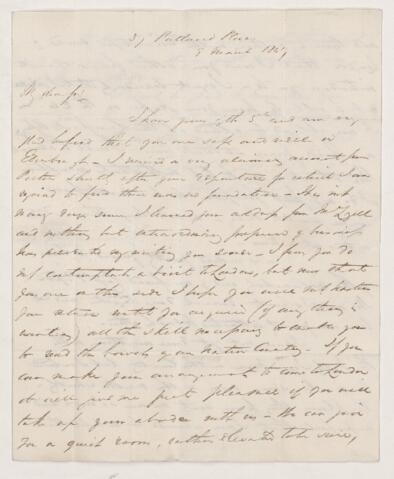 37 Portland Place
9 March 1841
My dear Sir
I have yours of the 5th and am very
glad to find that you are safe and well in
Edinburgh - I received a very alarming account from
Boston shortly after your departure for which I am
rejoiced to find there was no foundation - It is not
many days since I learned your address from Mr Lyell
and nothing but extraordinary pressure of business
has prevented my writing you sooner - I fear you do
not contemplate a visit to London, but now that
you are on this side I hope you will not hasten
your return until you acquire (if any thing is
wanting) all the skill necessary to enable you
to the bowels of our native Country - If you
can make your arrangements to come to London
it will give me great pleasure if you will
take up your abode with us - We can give
you a quiet room, rather elevated to be sure,